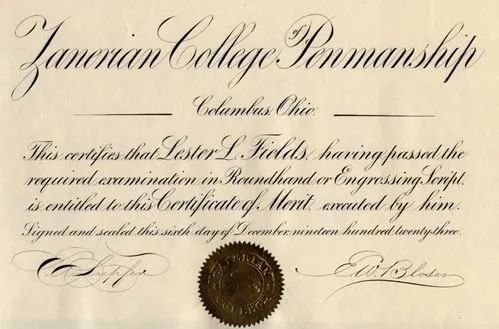 Zanerian College of Penmanship
Columbus, Ohio.
This certifies that Lester L. Fields, having passed the
required examination in Roundhand or Engrossing Script,
is entitled to this Certificate of Merit, executed by him.
Signed and sealed this sixth day of December, nineteen hundred twenty-three.
E. W. Bloser
ZANERIAN
COLLEGE